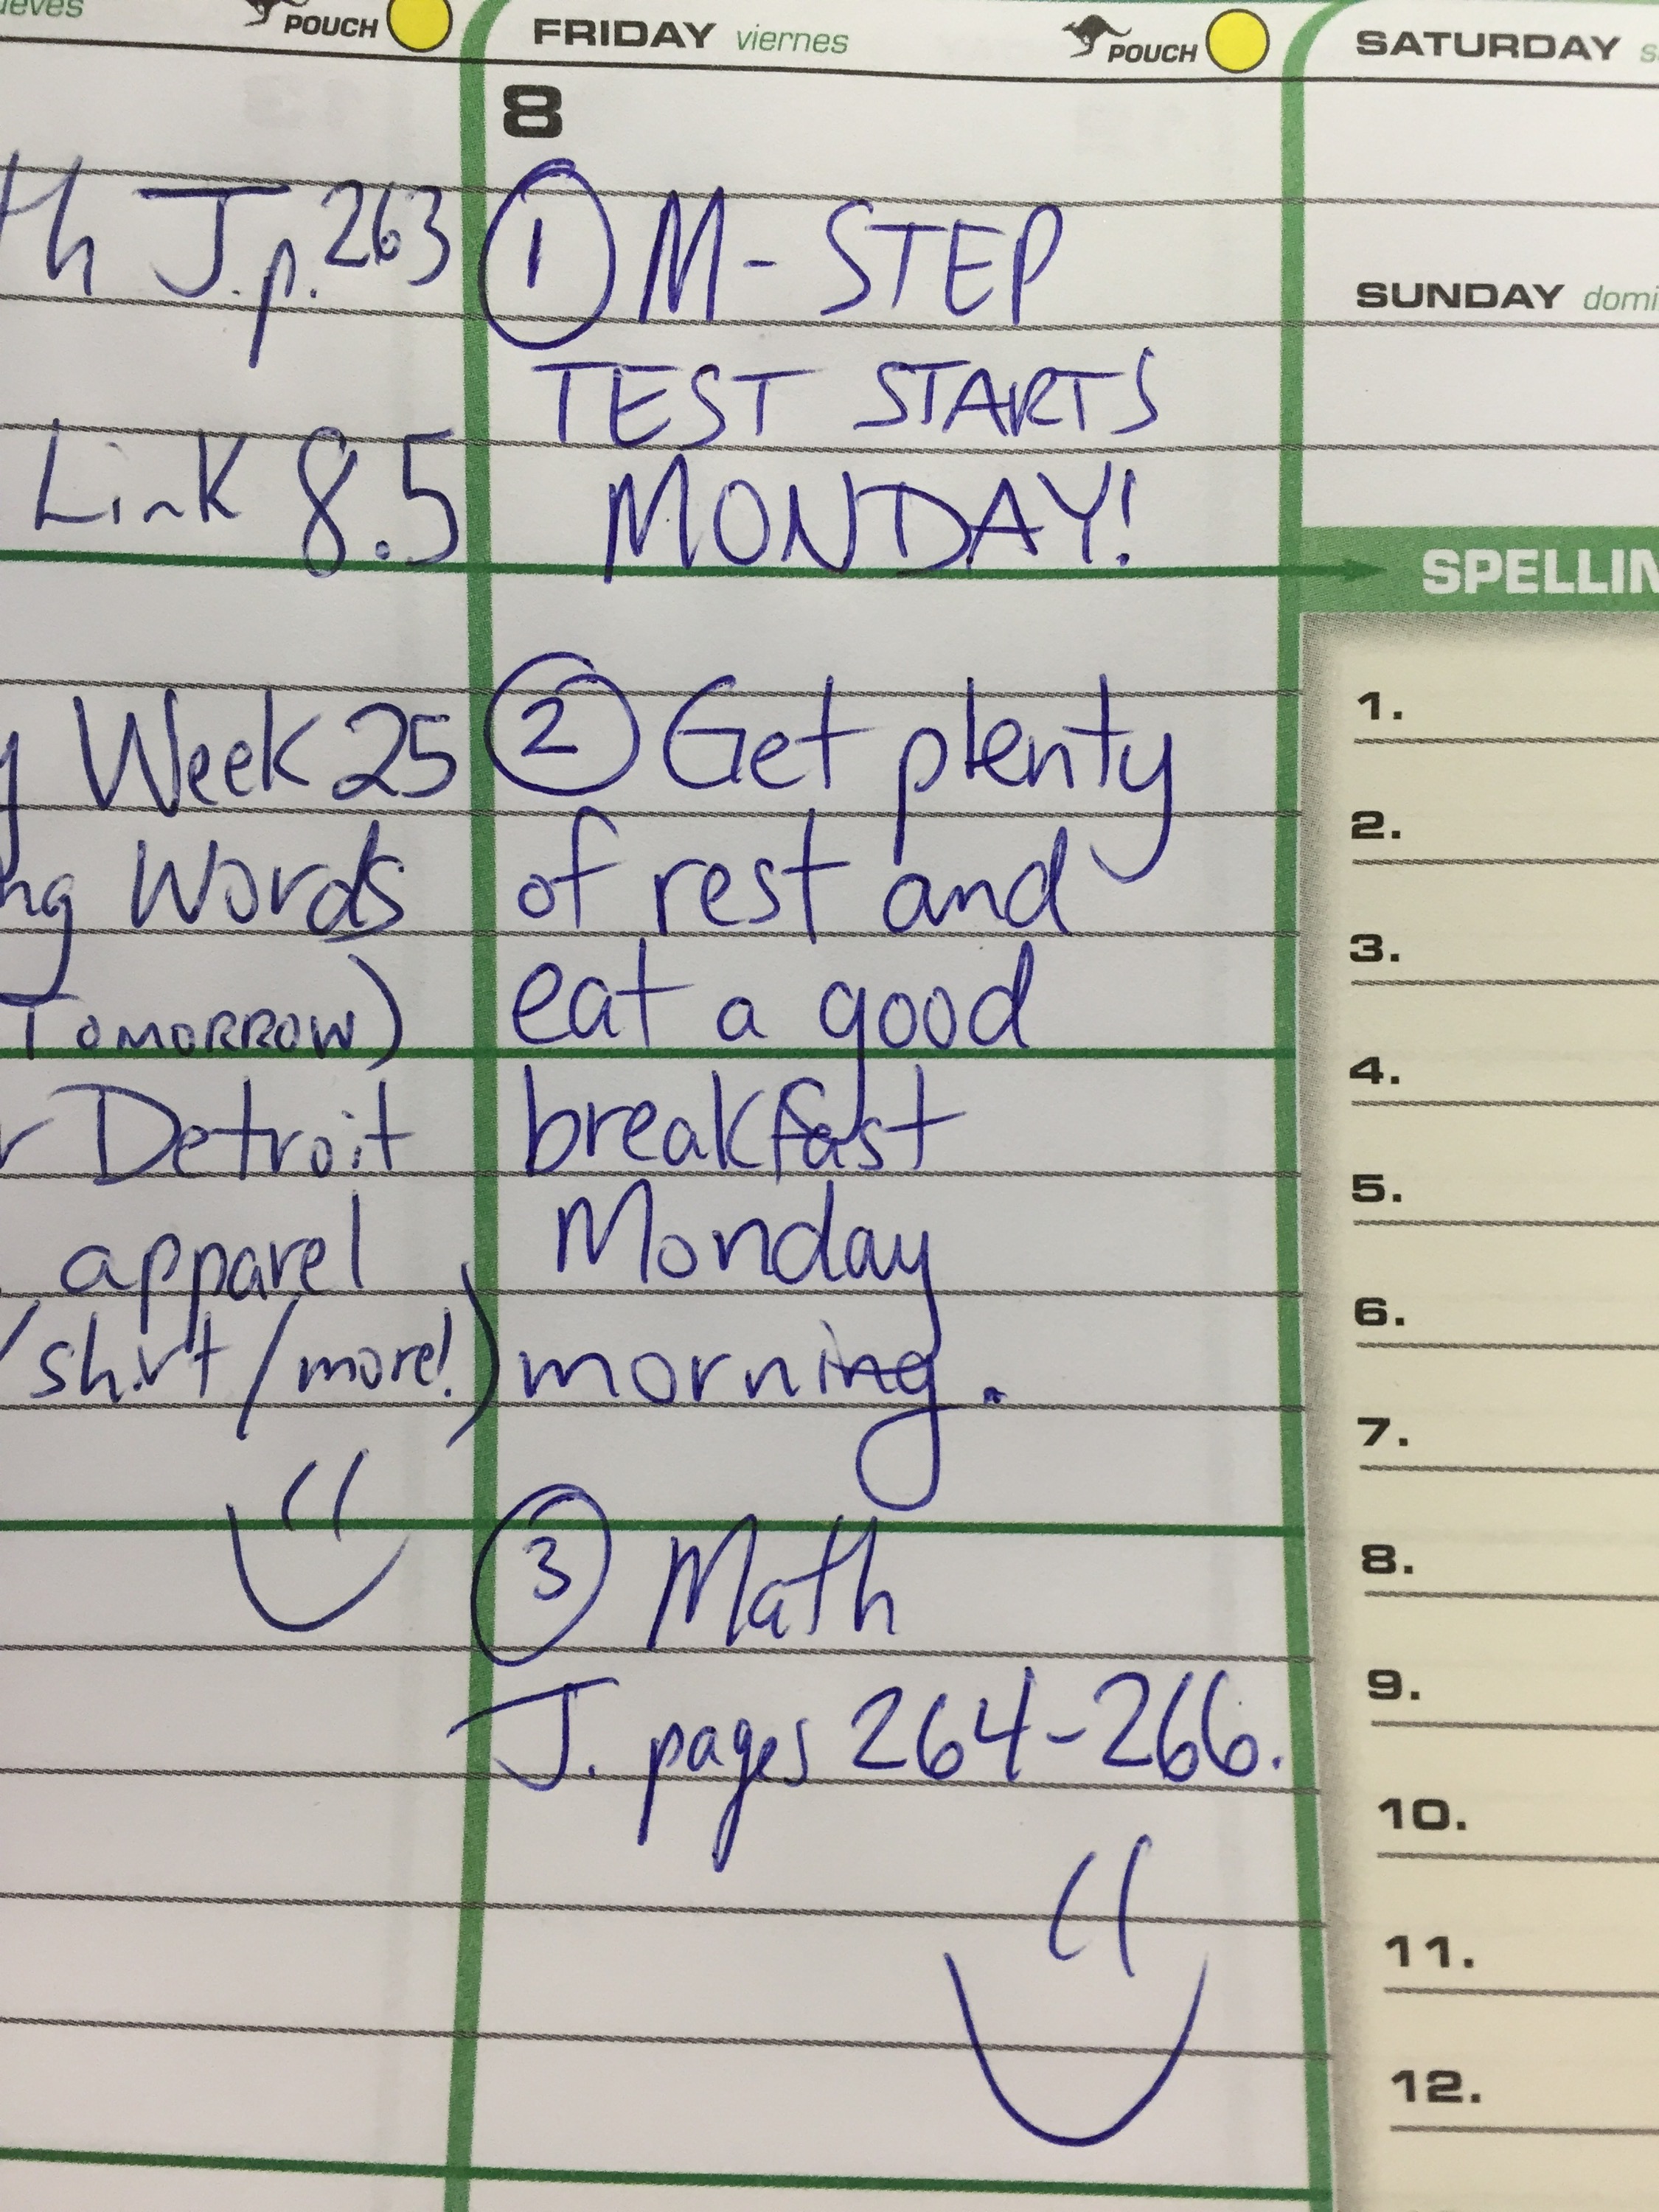 POUCH
th J.p. 263
Link 8.5
Week 25
Words
TOMORROW)
Detroit
apparel
/shirt/more!)
FRIDAY viernes
POUCH
8
1 M-STEP
TEST STARTS
MONDAY!
2 Get plenty
of rest and
eat a good
breakfast
Monday
morning.
3 Math
J. pages 264-266.
SATURDAY
SUNDAY
1.
2.
3.
4.
5.
6.
7.
8.
9.
10.
11.
12.